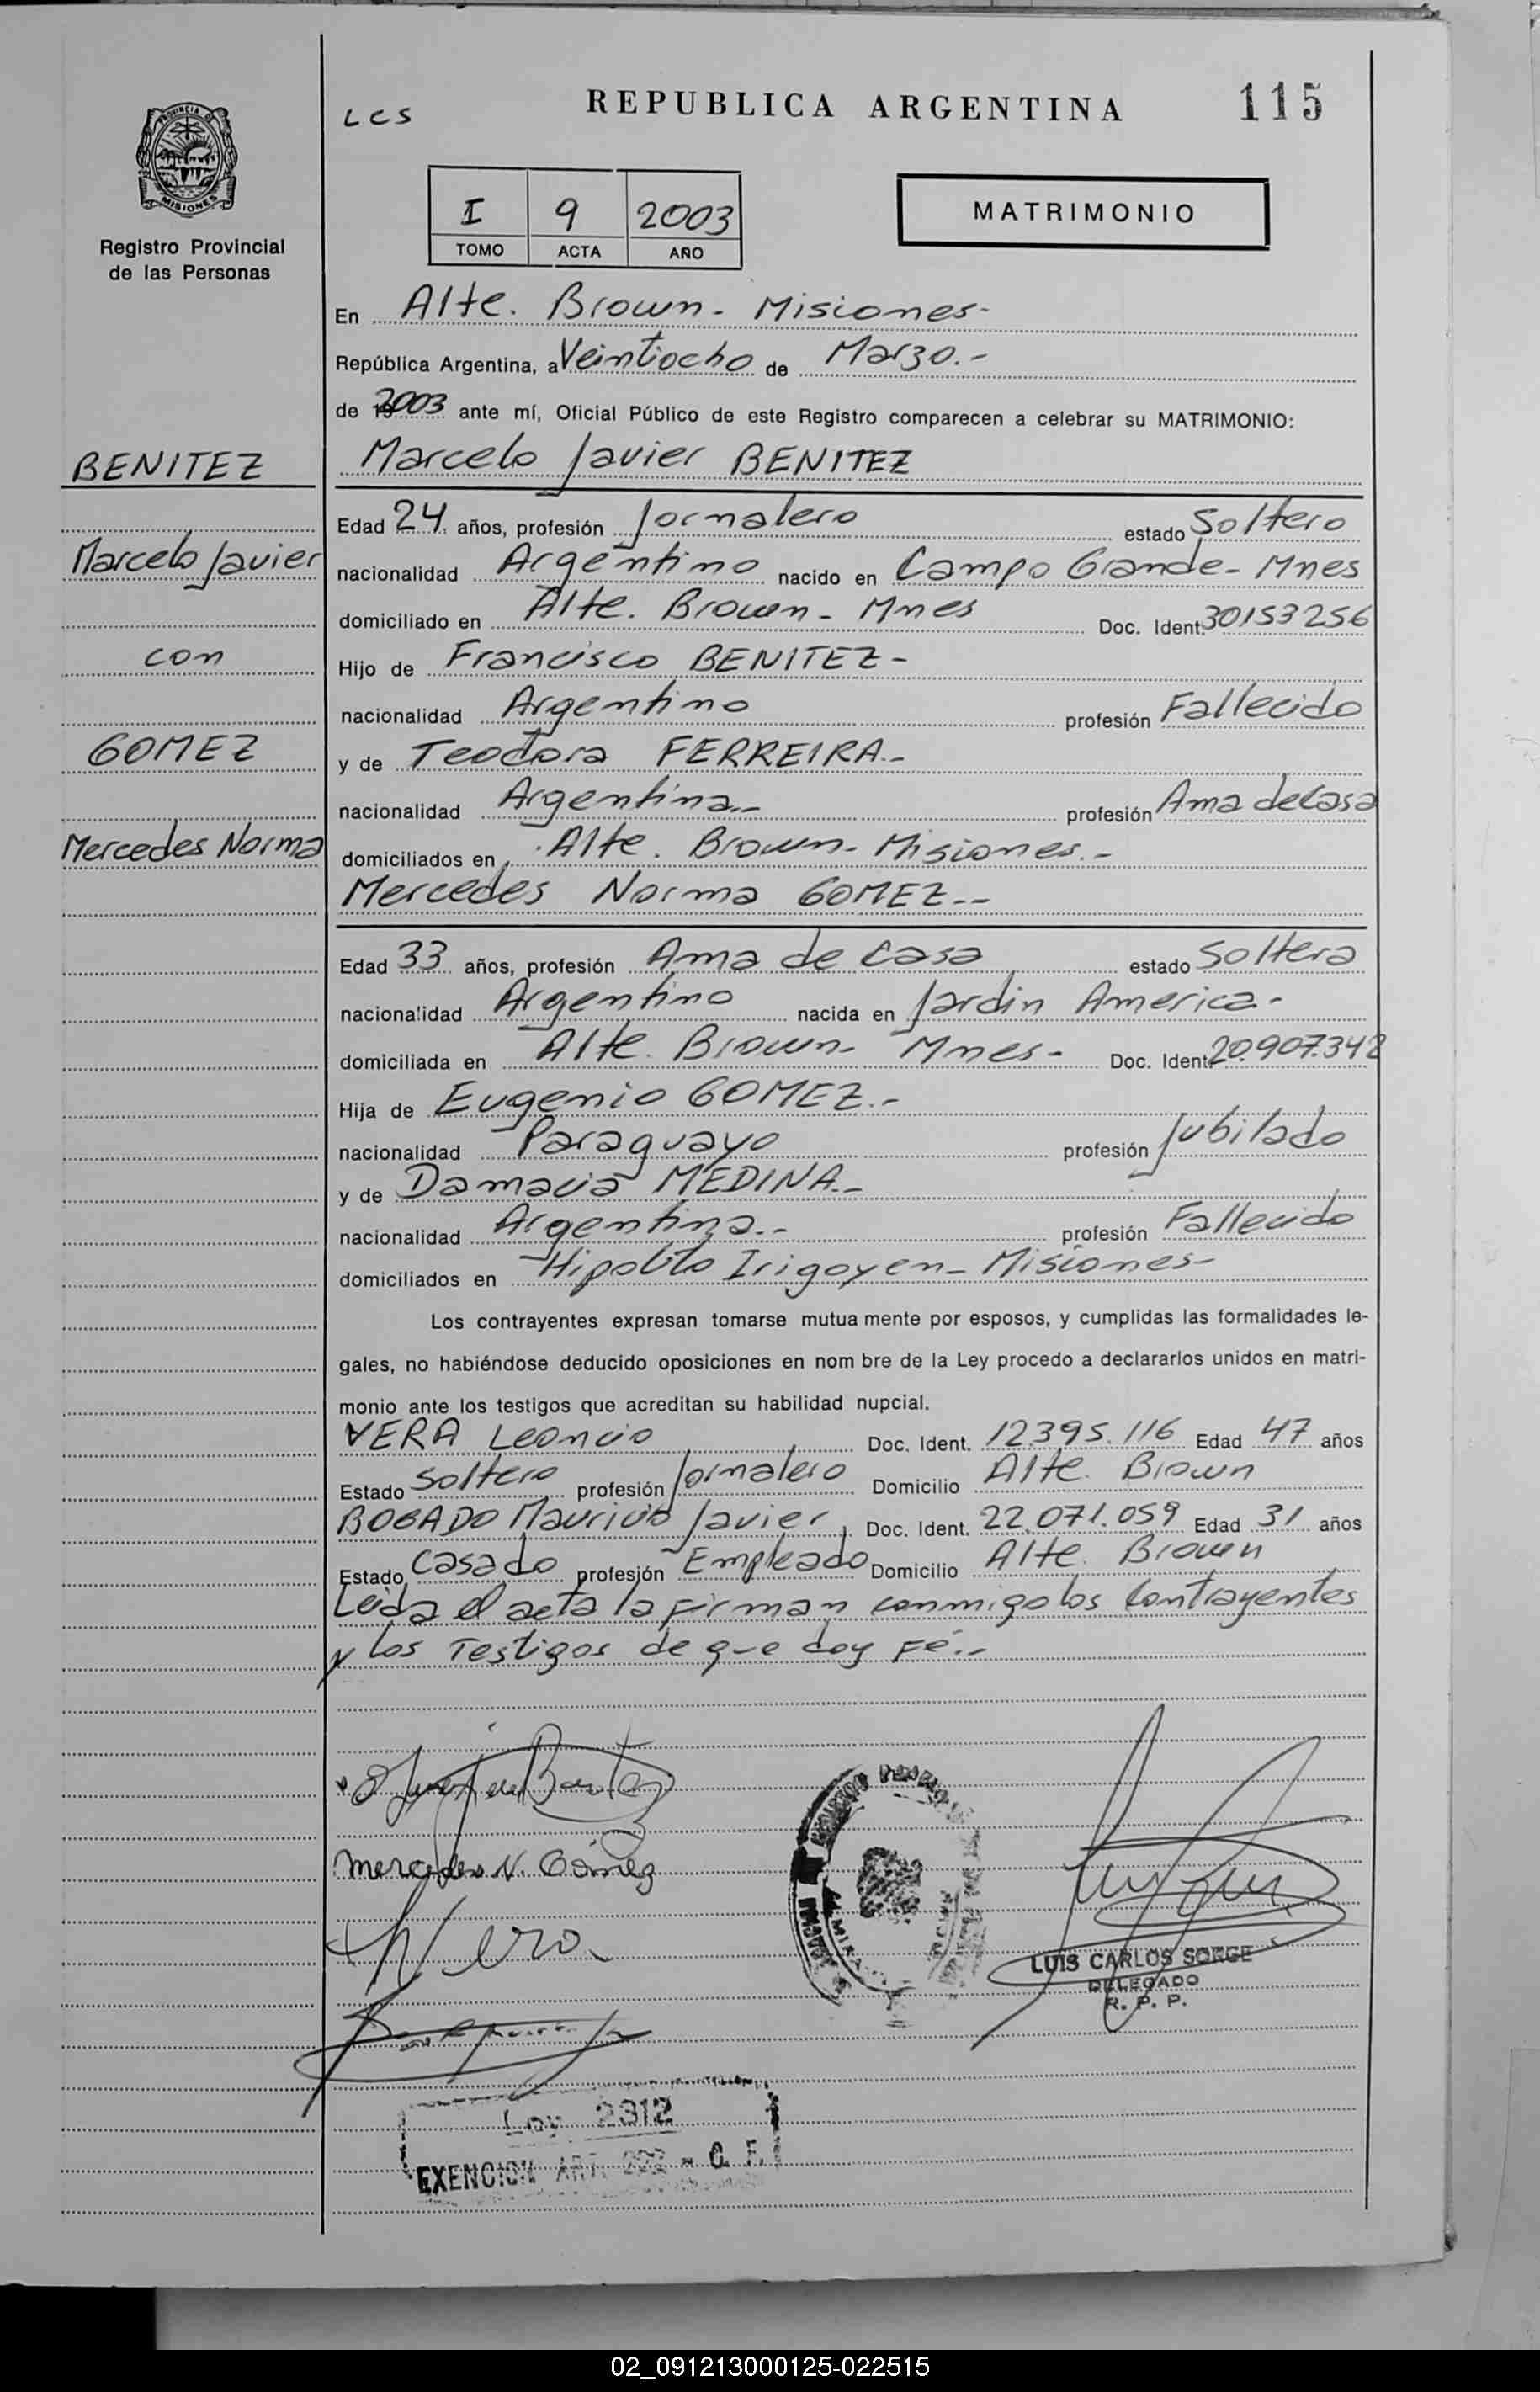 LCS
REPUBLICA ARGENTINA
115
PROVINCIA DE
MISIONES
Registro Provincial
de las Personas
I 9 2003
TOMO ACTA AÑO
MATRIMONIO
En Alte. Brown - Misiones-
República Argentina, a Veintiocho de Marzo.-
de 2003 ante mí, Oficial Público de este Registro comparecen a celebrar su MATRIMONIO:
BENITEZ
Marcelo Javier
con
GOMEZ
Mercedes Norma
Marcelo Javier BENITEZ
Edad 24 años, profesión Jornalero estado Soltero
nacionalidad Argentino nacido en Campo Grande - Mnes
domiciliado en Alte. Brown - Mnes Doc. Ident. 30153256
Hijo de Francisco BENITEZ-
nacionalidad Argentino profesión Fallecido
y de Teodora FERREIRA.-
nacionalidad Argentina.- profesión Ama de Casa
domiciliados en Alte. Brown - Misiones.-
Mercedes Norma GOMEZ.--
Edad 33 años, profesión Ama de Casa estado Soltera
nacionalidad Argentino nacida en Jardin America-
domiciliada en Alte. Brown - Mnes- Doc. Ident. 20.907.342
Hija de Eugenio GOMEZ.-
nacionalidad Paraguayo profesión Jubilado
y de Damacia MEDINA.-
nacionalidad Argentina.- profesión Fallecido
domiciliados en Hipolito Irigoyen - Misiones-
Los contrayentes expresan tomarse mutua mente por esposos, y cumplidas las formalidades le-
gales, no habiéndose deducido oposiciones en nom bre de la Ley procedo a declararlos unidos en matri-
monio ante los testigos que acreditan su habilidad nupcial.
VERA Leoncio Doc. Ident. 12.395.116 Edad 47 años
Estado Soltero profesión Jornalero Domicilio Alte. Brown
BOGADO Mauricio Javier Doc. Ident. 22.071.059 Edad 31 años
Estado Casado profesión Empleado Domicilio Alte. Brown
Leida el acta la firman conmigo los Contrayentes
y los Testigos de que doy Fé.-
Mercedes N. Gómez
Vera
LUIS CARLOS SORGE
DELEGADO
R. P. P.
Ley 2312
EXENCION ART. 222 - C. F.
02_091213000125-022515